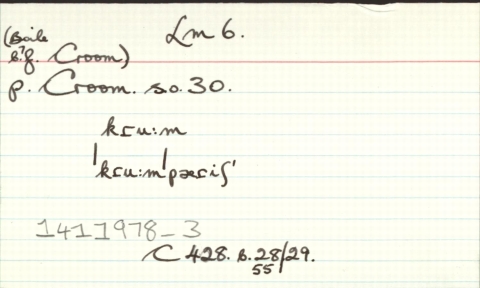 Lm 6.
(Baile
s? g. Croom)
p. Croom. s.o. 30.
kɾu:m
ˈkɾu:mˈpæɾiʃ
1411978_3
C 428. B. 28/29.
55